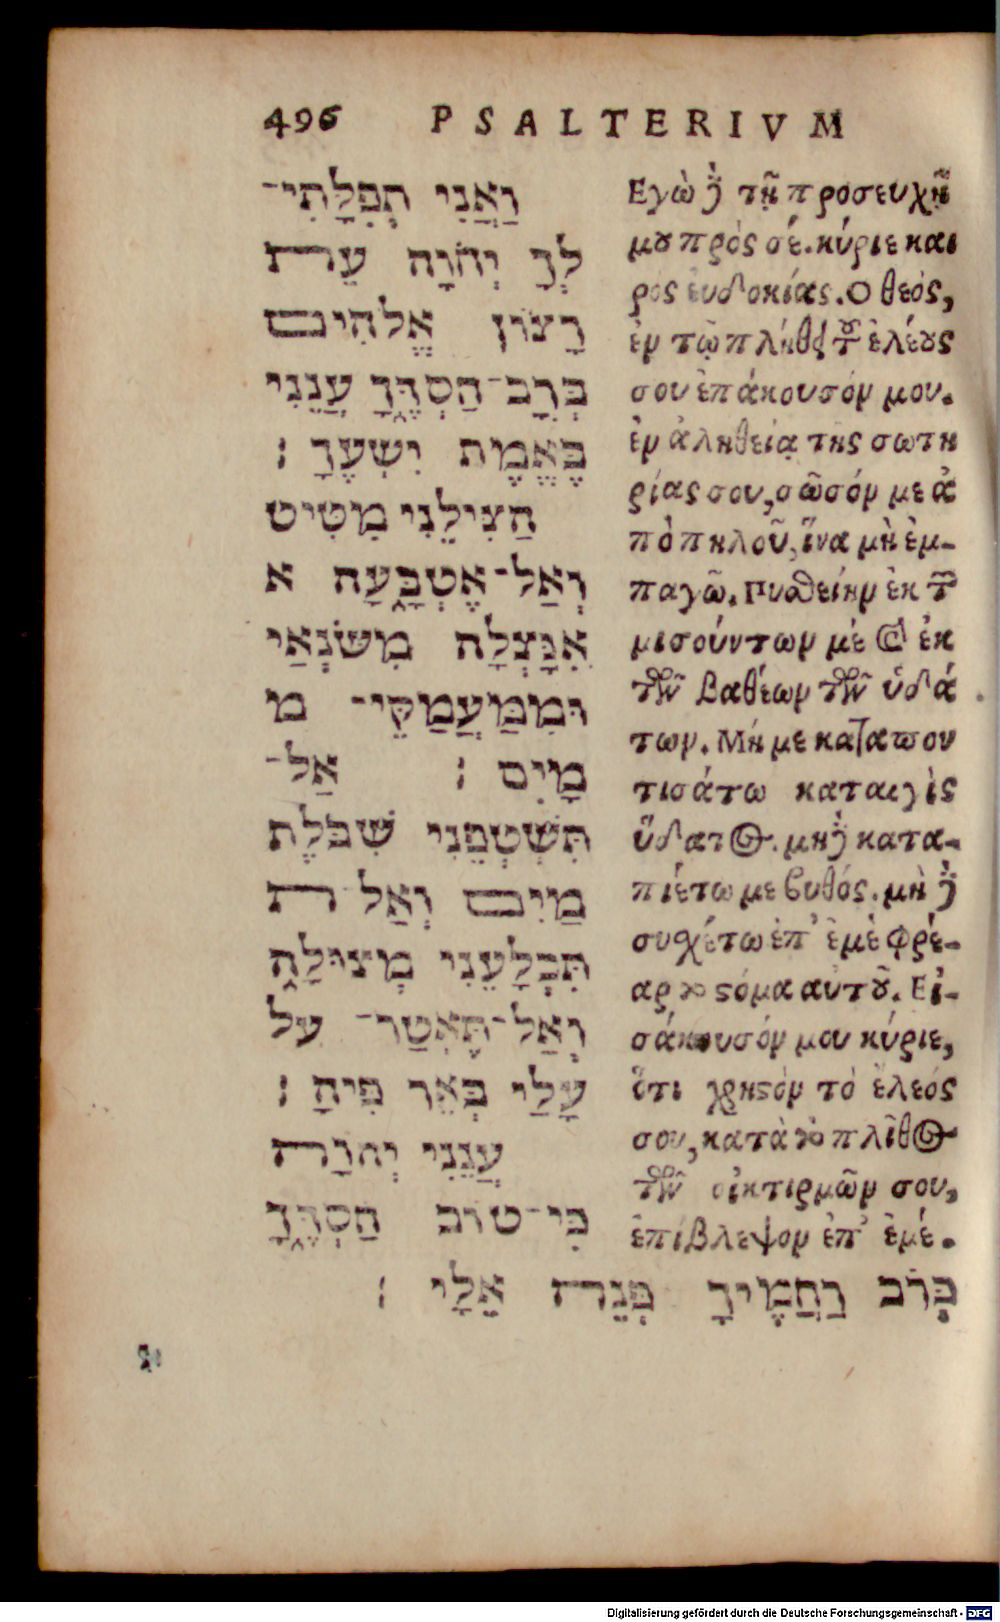 496 PSALTERIVM
וַאֲנִי תְפִלָּתִי־
לְךָ יְהֹוָה עֵת
רָצוֹן אֱלֹהִים
בְּרָב־חַסְדֶּךָ עֲנֵנִי
בֶּאֱמֶת יִשְׁעֶךָ :
הַצִּילֵנִי מִטִּיט
וְאַל־אֶטְבָּעָה א
אִנָּצְלָה מִשֹּׂנְאַי
וּמִמַּעֲמַקֵּי־ מ
מָיִם : אַל־
תִּשְׁטְפֵנִי שִׁבֹּלֶת
מַיִם וְאַל ת
תִּבְלָעֵנִי מְצוּלָה
וְאַל־תֶּאְטַר־ על
עָלַי בְּאֵר פִּיהָ :
עֲנֵנִי יְהוָה
כִּי־טוֹב חַסְדֶּךָ
כְּרֹב רַחֲמֶיךָ פְּנֵה אֵלָי :
Εγὼ δὲ τῇ προσευχῇ
μου πρός σέ. κύριε και
ρὸς ἐυδοκίας. Ο θεός,
ἐν τῷ πλήθει τοῦ ἐλέους
σου ἐπάκουσόν μου.
ἐν ἀληθείᾳ τῆς σωτη
ρίας σου, σῶσόν με ἀ
πὸ πηλοῦ, ἵνα μὴ ἐμ-
παγῶ. Ρυσθείην ἐκ τῶν
μισούντων μέ καὶ ἐκ
τῶν βαθέων τῶν ὑδά
των. Μή με καταπον
τισάτω καταιγὶς
ὕδατος. μηδὲ κατα-
πιέτω με βυθός. μὴ δὲ
συσχέτω ἐπ' ἐμὲ φρέ-
αρ τὸ στόμα αὐτοῦ. Εἰ-
σάκουσόν μου κύριε,
ὅτι χρηστὸν τὸ ἔλεός
σου, κατὰ τὸ πλῆθος
τῶν οἰκτιρμῶν σου,
ἐπίβλεψον ἐπ' ἐμέ.
Digitalisierung gefördert durch die Deutsche Forschungsgemeinschaft - DFG